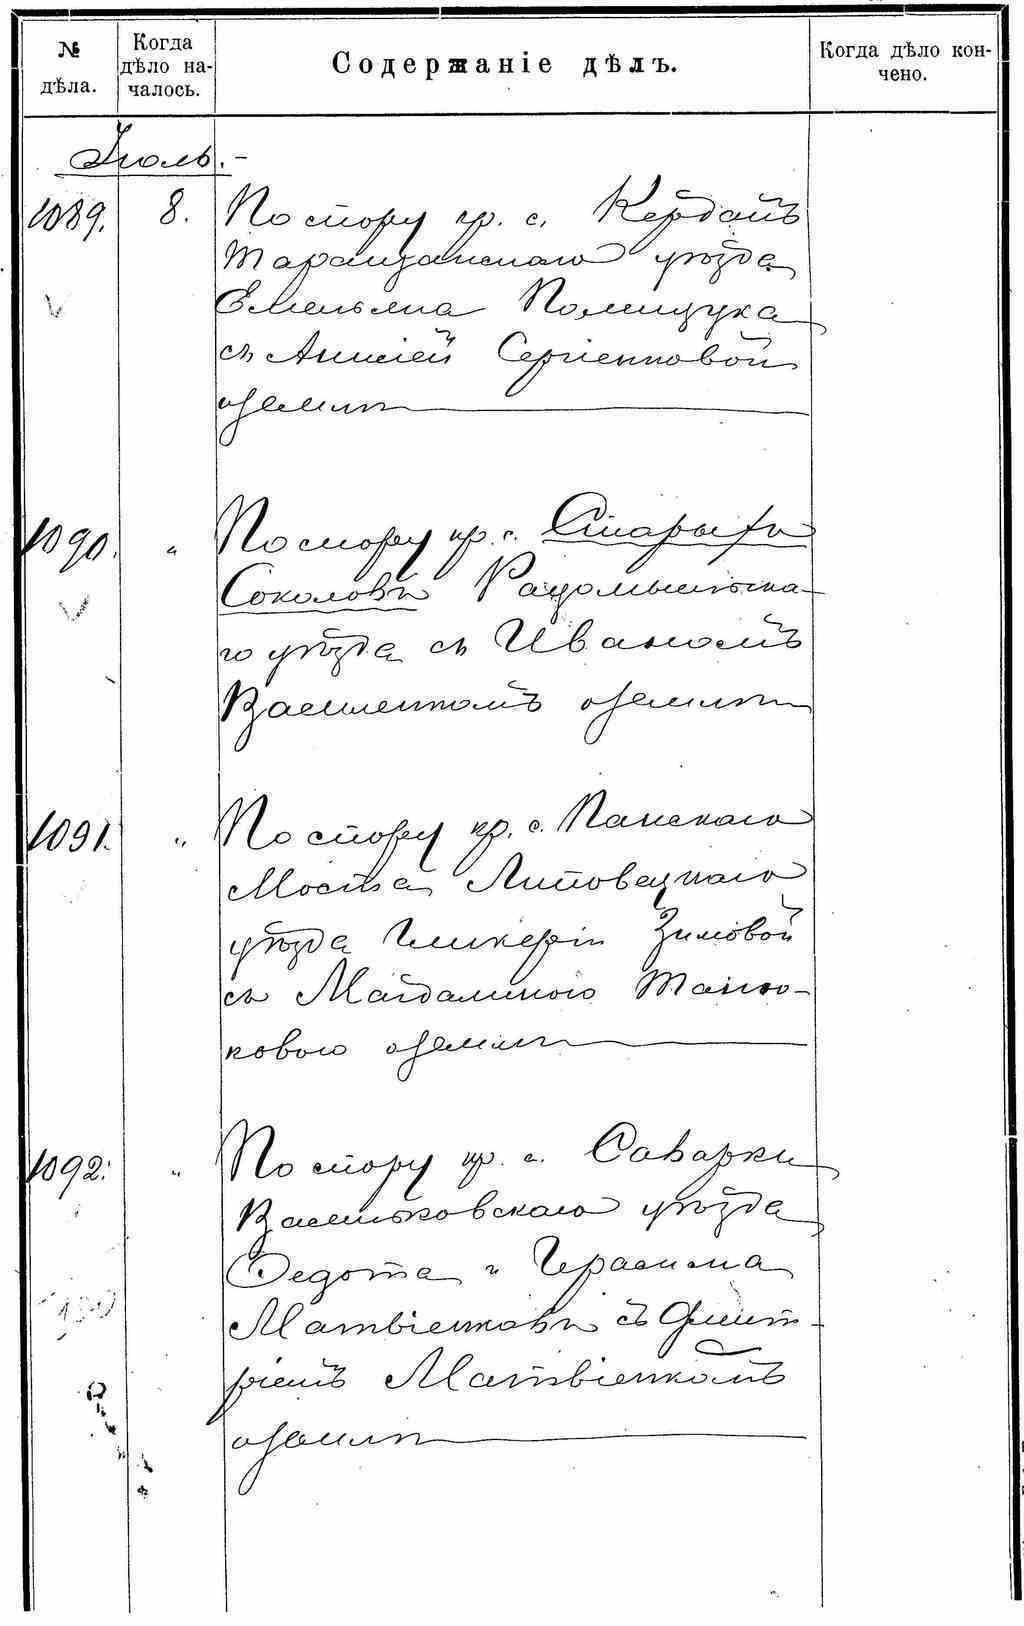 № дѣла.
Когда дѣло на-
чалось.
Содержаніе дѣлъ.
Когда дѣло кон-
чено.
Іюль.-
1089. 8. По спору кр. с. Кердан
Таращанскаго уѣзда
Емельяна Полищука
съ Анисіей Сергіенковой
о землѣ
1090. " По спору кр. с. Старыхъ
Соколовъ Радомысльска-
го уѣзда съ Иваномъ
Василенкомъ о землѣ
1091. " По спору кр. с. Панскаго
Моста Липовецкаго
уѣзда Гликеріи Зимовой
съ Магдалиною Таню-
ковою о землѣ
1092. " По спору кр. с. Саварки
Васильковскаго уѣзда
Федота и Герасима
Матвіенковъ съ Дмит-
ріемъ Матвіенкомъ
о землѣ